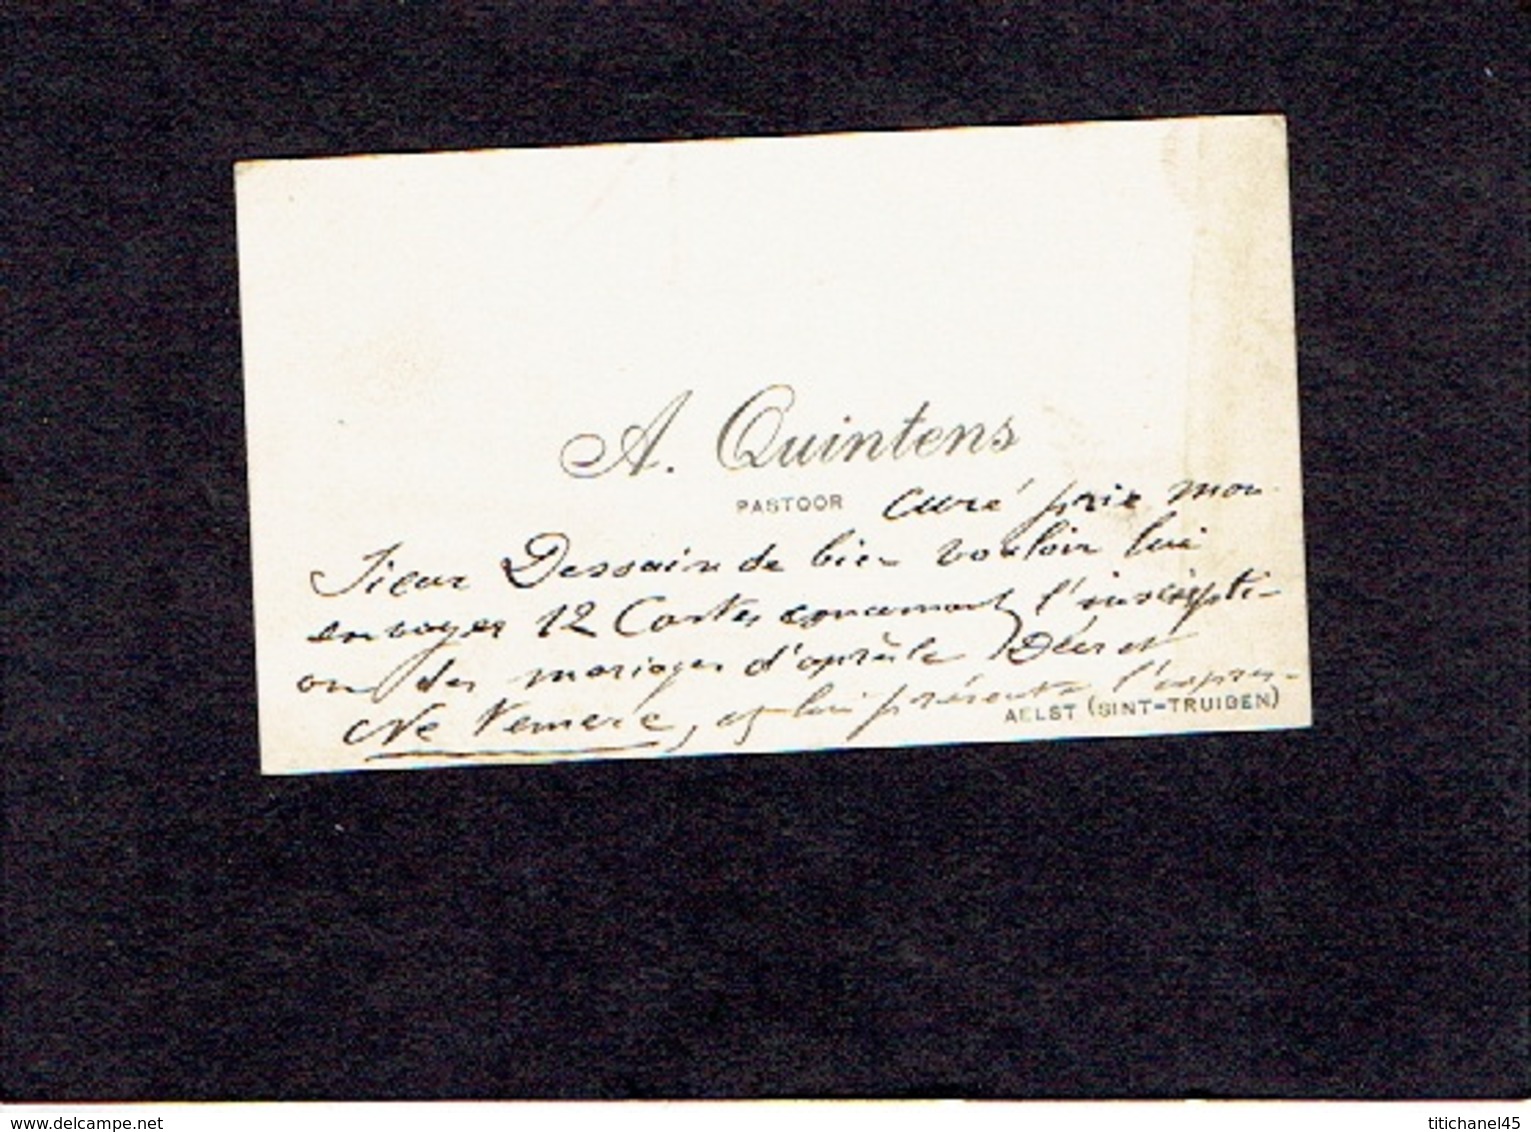 A. Quintens
PASTOOR curé prie mon-
sieur Dessain de bien vouloir lui
envoyer 12 Cartes concernant l'inscripti-
on des mariages d'après le Décret
Ne Temere, et lui présente l'expres-
AELST (SINT-TRUIDEN)
www.delcampe.net
titichanel45